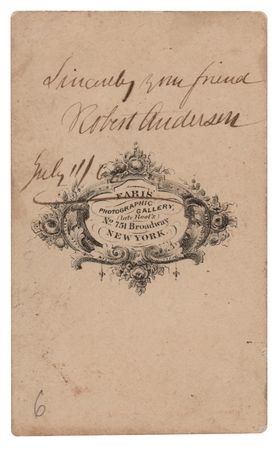 Sincerely your friend
Robert Anderson
July 11/
FARIS'
PHOTOGRAPHIC
GALLERY,
(late Root's)
No 751 Broadway
NEW YORK
6